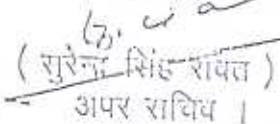 ( सुरेन्द्र सिंह रावत )
अपर सचिव ।